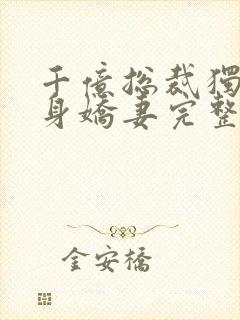 千億總裁獨
身嬌妻完整
金安橋